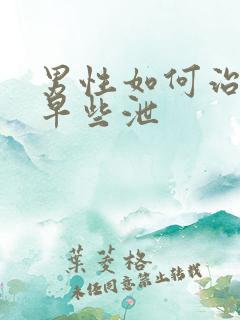 男性如何治
早些泄
葉菱格
未经同意禁止转载